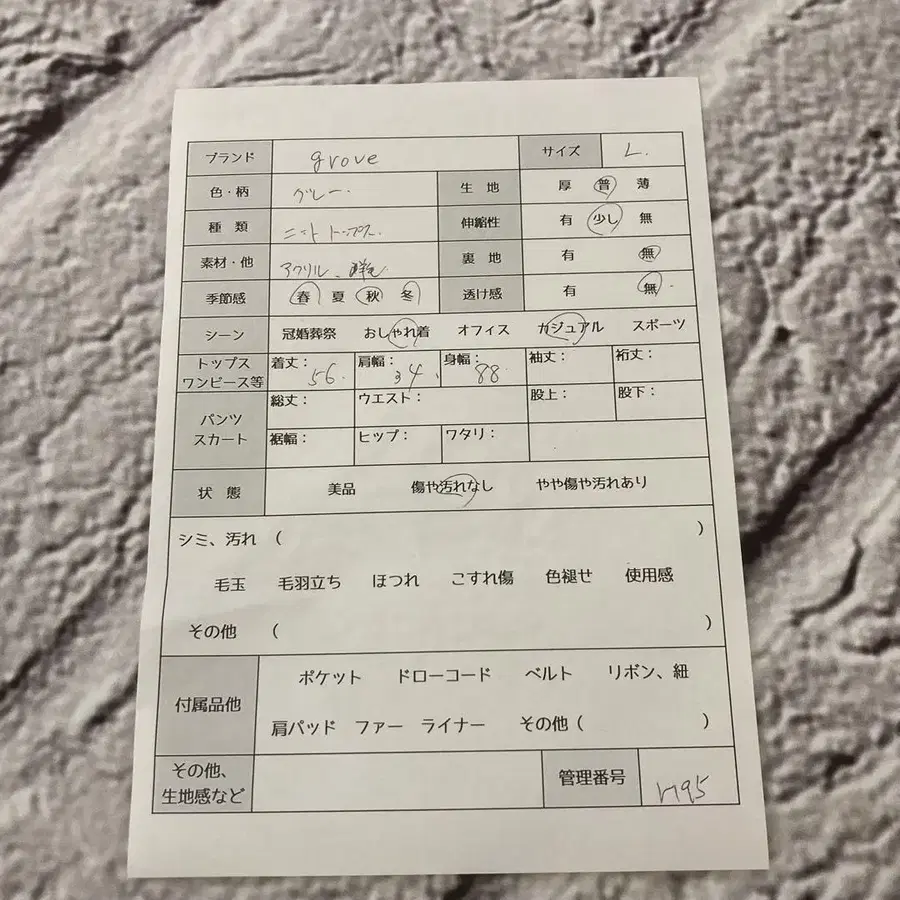 ブランド grove サイズ L.
色・柄 グレー. 生 地 厚 普 薄
種 類 ニット トップス. 伸縮性 有 少し 無
素材・他 アクリル、 裏 地 有 無
季節感 春 夏 秋 冬 透け感 有 無
シーン 冠婚葬祭 おしゃれ着 オフィス カジュアル スポーツ
トップス ワンピース等 着丈: 56. 肩幅: 34. 身幅: 88. 袖丈: 裄丈:
パンツ スカート 総丈: ウエスト: 股上: 股下:
裾幅: ヒップ: ワタリ:
状 態 美品 傷や汚れなし やや傷や汚れあり
シミ、汚れ ( )
毛玉 毛羽立ち ほつれ こすれ傷 色褪せ 使用感
その他 ( )
付属品他 ポケット ドローコード ベルト リボン、紐
肩パッド ファー ライナー その他 ( )
その他、
生地感など 管理番号